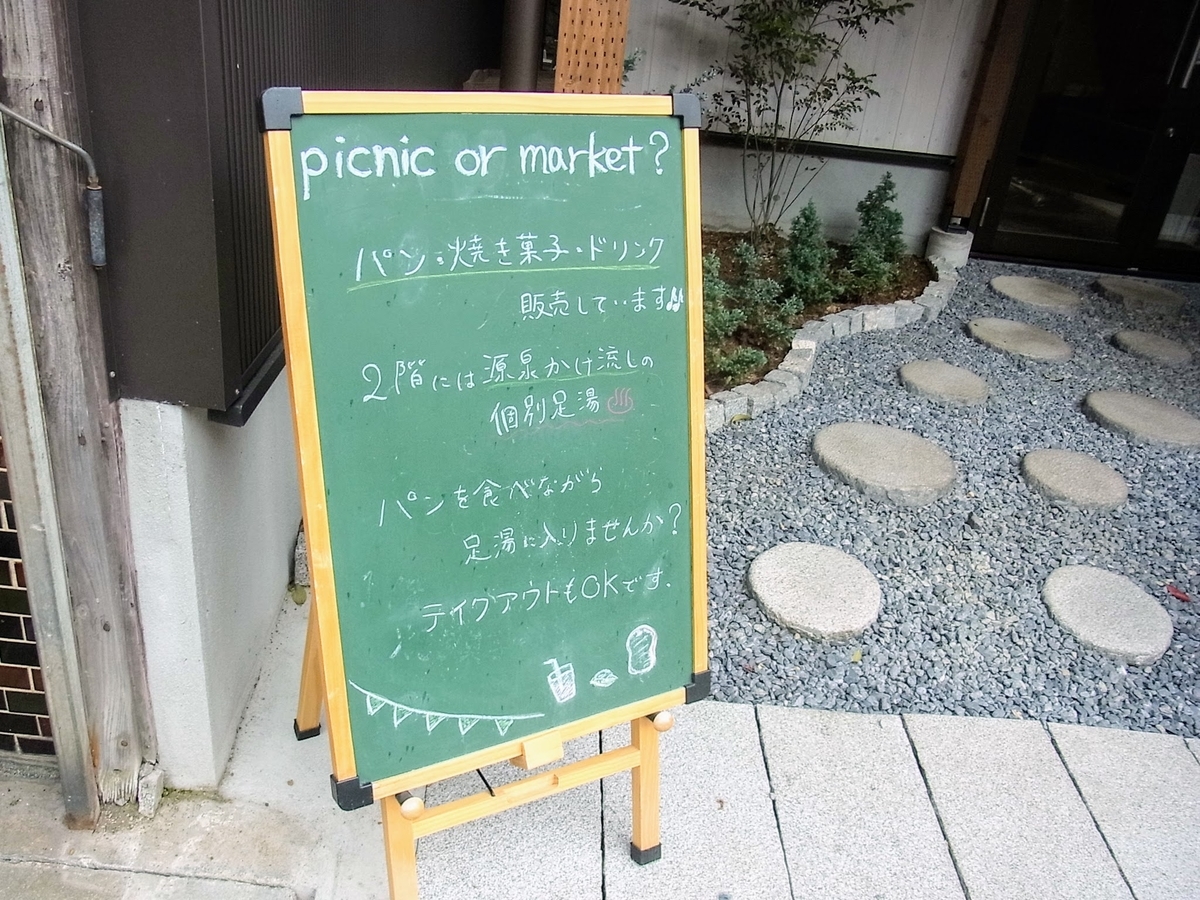 picnic or market?
パン・焼き菓子・ドリンク
販売しています♪
2階には源泉かけ流しの
個別足湯♨
パンを食べながら
足湯に入りませんか?
テイクアウトもOKです.